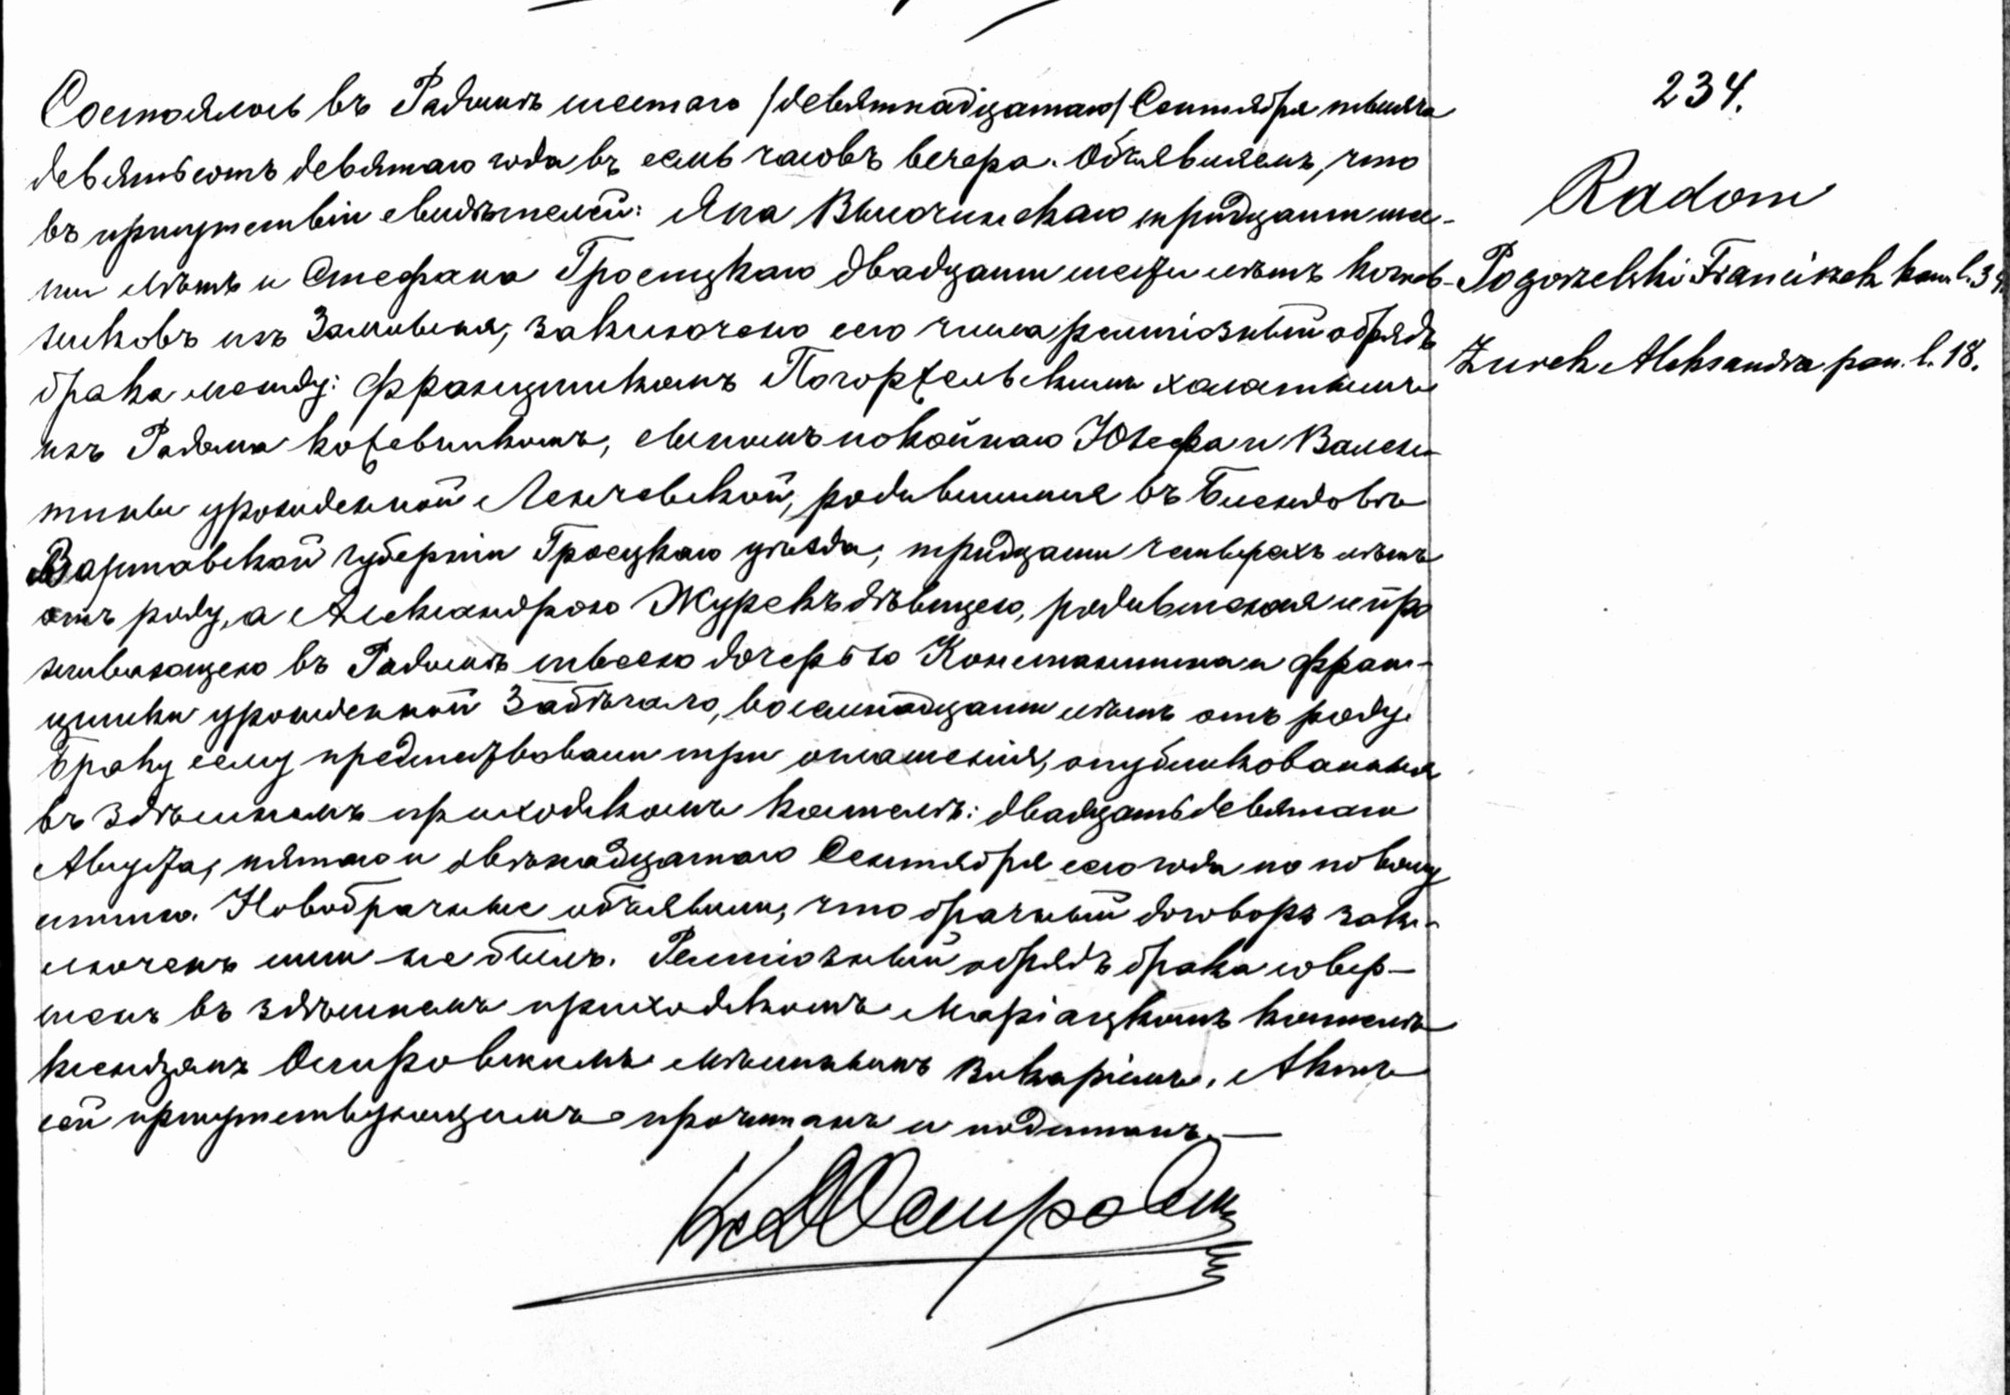 Состоялось въ Радомѣ шестаго /девятнадцатаго/ Сентября тысяча
девятьсотъ девятаго года въ семь часовъ вечера. Объявляемъ, что
въ присутствіи свидѣтелей: Яна Высочинскаго тридцати ше-
сти лѣтъ и Стефана Гроецкаго двадцати шести лѣтъ кожев-
никовъ изъ Замлынья, заключено сего числа религіозный обрядъ
брака между: Францишкомъ Погоржельскимъ холостымъ
изъ Радома кожевникомъ, сыномъ покойнаго Юзефа и Вален-
тины урожденной Ленчевской, родившимся въ Блендовѣ
Варшавской губерніи Гроецкаго уѣзда, тридцати четырехъ лѣтъ
отъ роду, а Александрою Журекъ дѣвицею, родившеюся и про
живающею въ Радомѣ дочерью Константина и Фран-
цишки урожденной Забѣгало, восемнадцати лѣтъ отъ роду.
Браку сему предшествовали три оглашенія, опубликованныя
въ здѣшнемъ приходскомъ костелѣ: двадцать девятаго
Августа, пятаго и двѣнадцатаго Сентября сего года по новому
стилю. Новобрачные объявили, что брачный договоръ заклю-
ченъ ими не былъ. Религіозный обрядъ брака совер-
шенъ въ здѣшнемъ приходскомъ Маріацкомъ костелѣ
ксендзомъ Островскимъ мѣстнымъ Викаріемъ. Актъ
сей присутствующимъ прочитанъ и подписанъ.—
234.
Radom
Pogorzelski Franciszek kaw. l. 34
Żurek Aleksandra pan. l. 18.